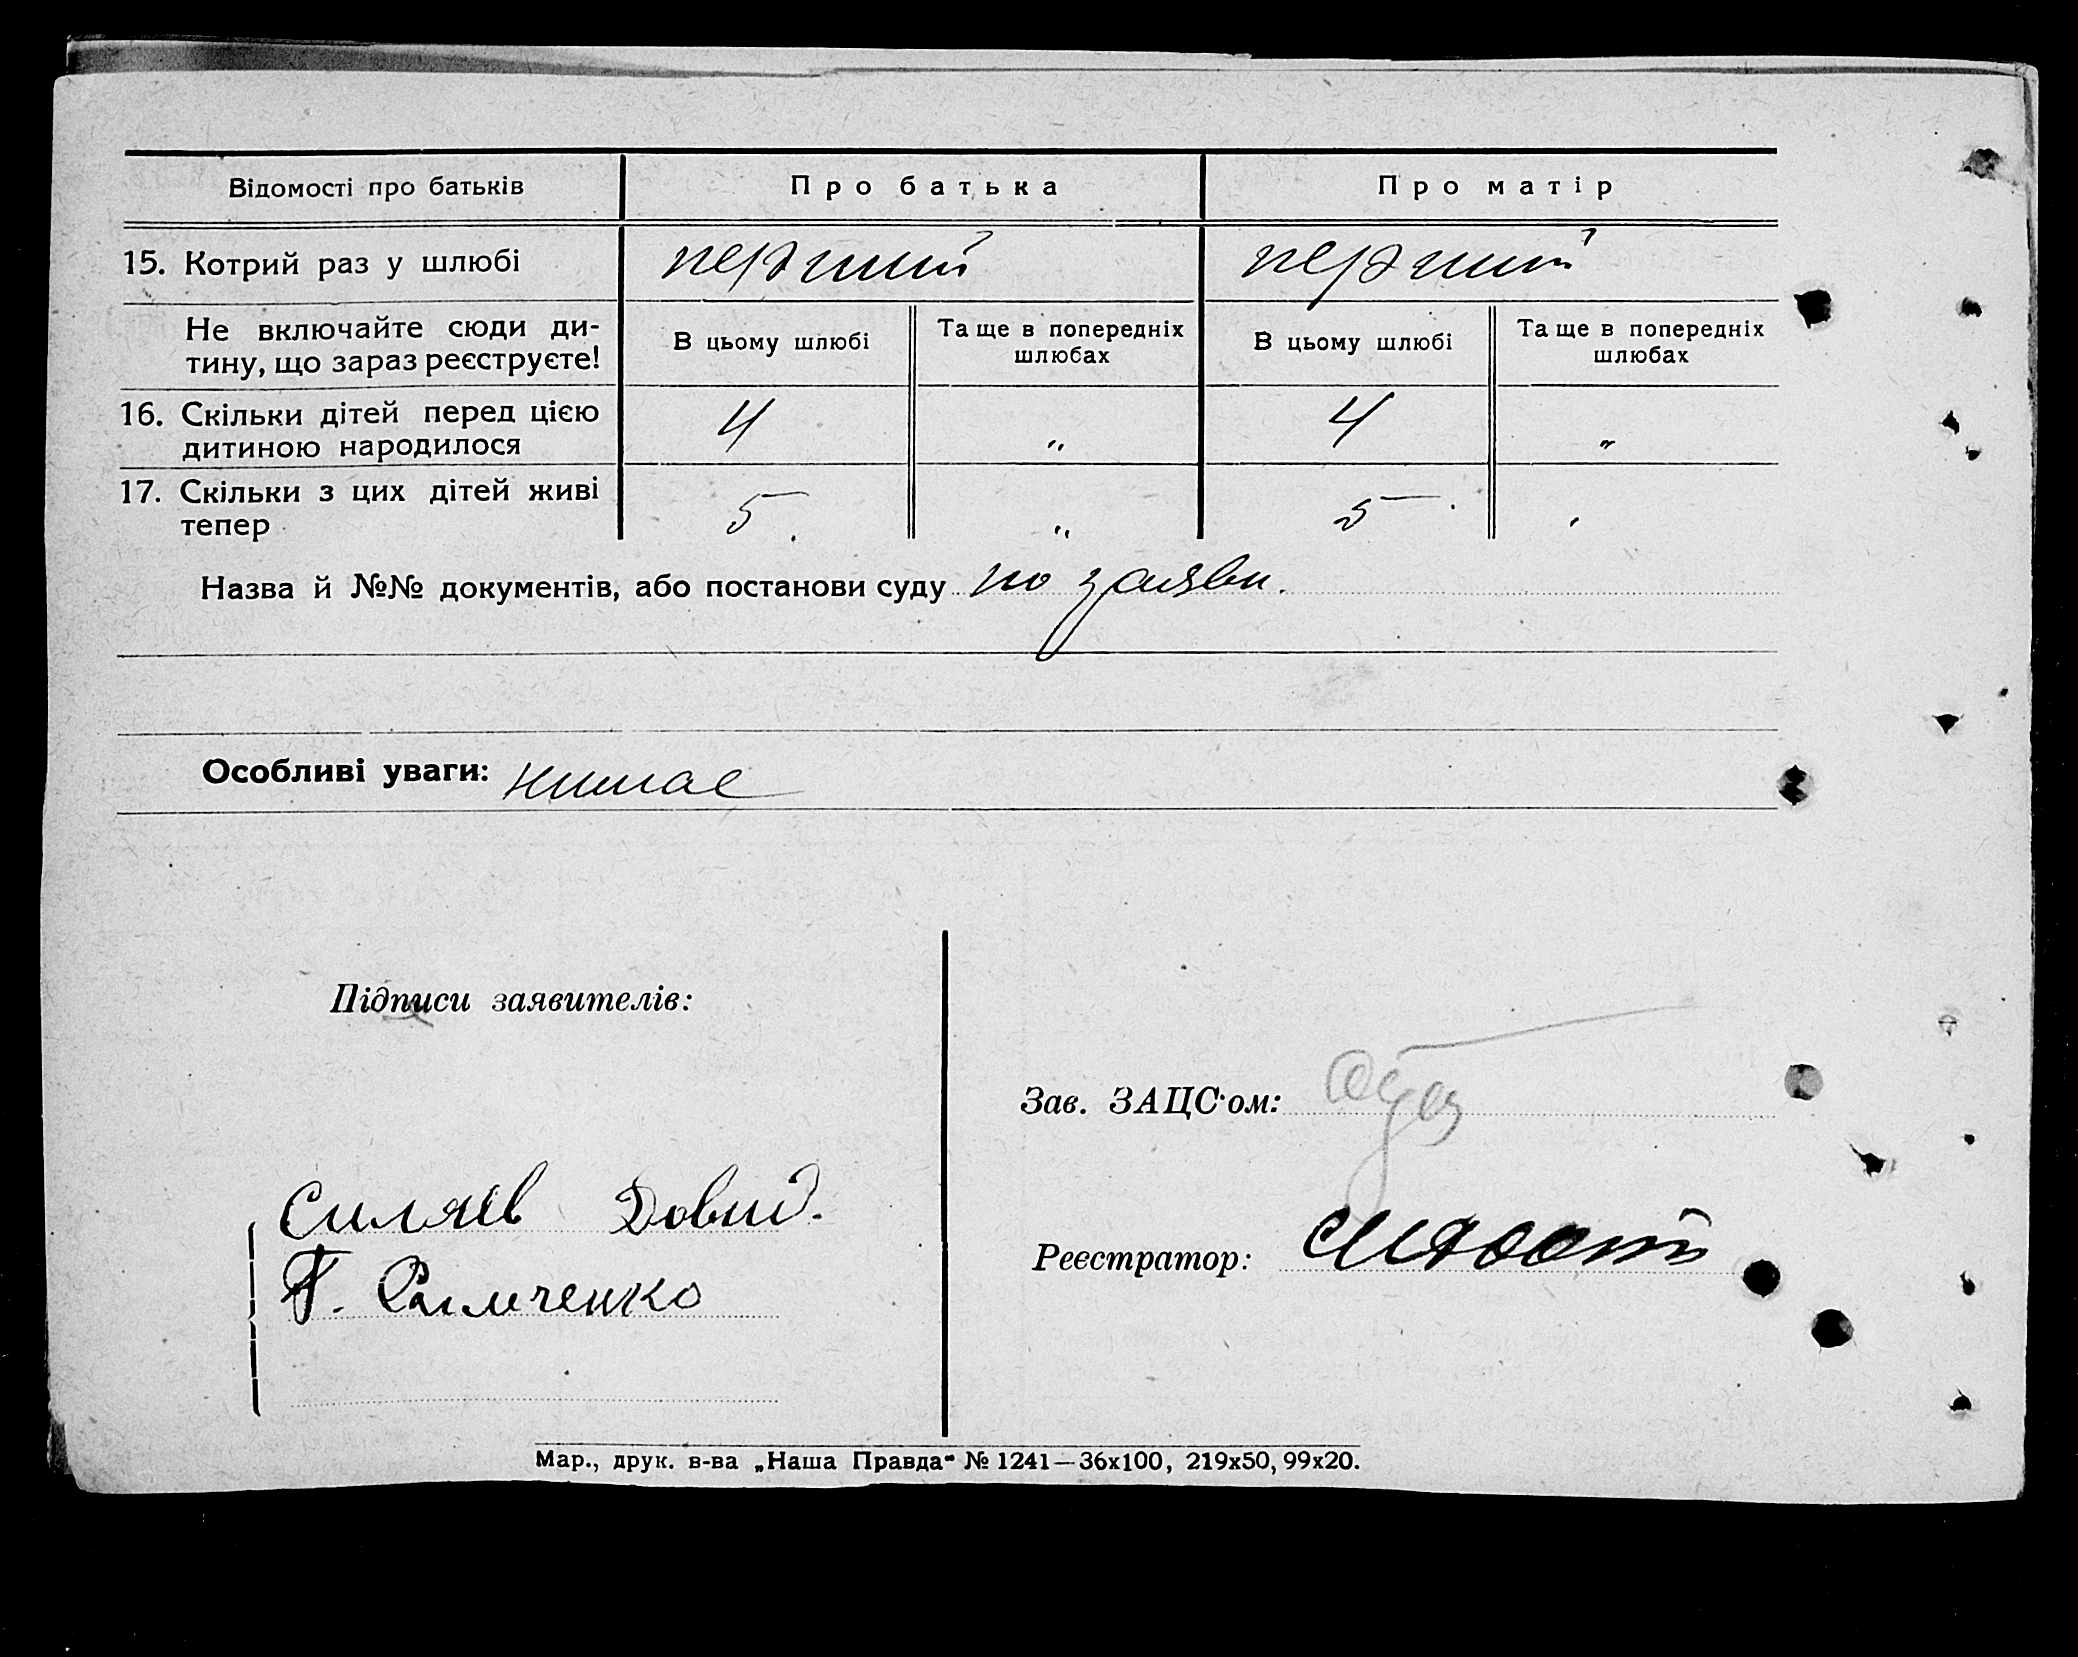 Відомості про батьків Про батька Про матір
15. Котрий раз у шлюбі перший перший
Не включайте сюди ди-
тину, що зараз реєструєте!
В цьому шлюбі
Та ще в попередніх
шлюбах
В цьому шлюбі
Та ще в попередніх
шлюбах
16. Скільки дітей перед цією
дитиною народилося
4 „ 4 „
17. Скільки з цих дітей живі
тепер
5 „ 5
Назва й №№ документів, або постанови суду по заяви.
Особливі уваги: нимае
Підписи заявителів:
Силяев Довид.
Рымченко
Зав. ЗАЦС'ом:
Реєстратор:
Мар., друк. в-ва „Наша Правда“ № 1241—36х100, 219х50, 99х20.